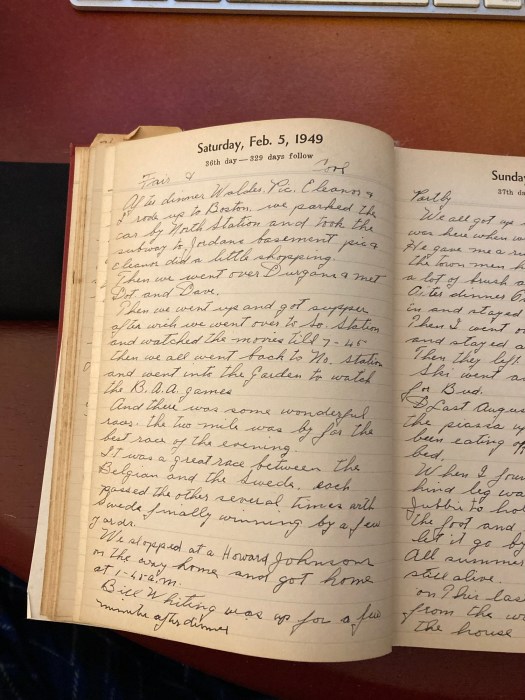 Saturday, Feb. 5, 1949
36th day—329 days follow
Fair & Cool
dinner Waldo, Pic. Eleanor &
I rode up to Boston. we parked the
car by North Station and took the
subway to Jordans basement pic &
Eleanor did a little shopping.
Then we went over Durgans & met
Dot and Dave.
Then we went up and got supper
after wich we went over to So. Station
and watched the movies till 7-45
then we all went back to No. Station
and went into the Garden to watch
the B.A.A. games
And there was some wonderful
races. the two mile was by far the
best race of the evening.
It was a great race between the
Belgian and the Swede. each
passed the other several times with
Swede finally winning by a few
yards.
We stopped at a Howard Johnsons
on the way home and got home
at 1-45 a.m.
Bill Whiting was up for a few
minute after dinner
Sunda
37th da
Partly
We all got up
was here when w
He gave me a
the town men
a lot of brush a
After dinner
in and stayed
Then I went o
and stayed a
Then they left
Ski went a
for Bud.
Last Augus
the piassia
been eating
bed.
When I foun
hind leg wa
to
the foot and
let it go by
All summer
still alive.
on This las
from the wo
the house